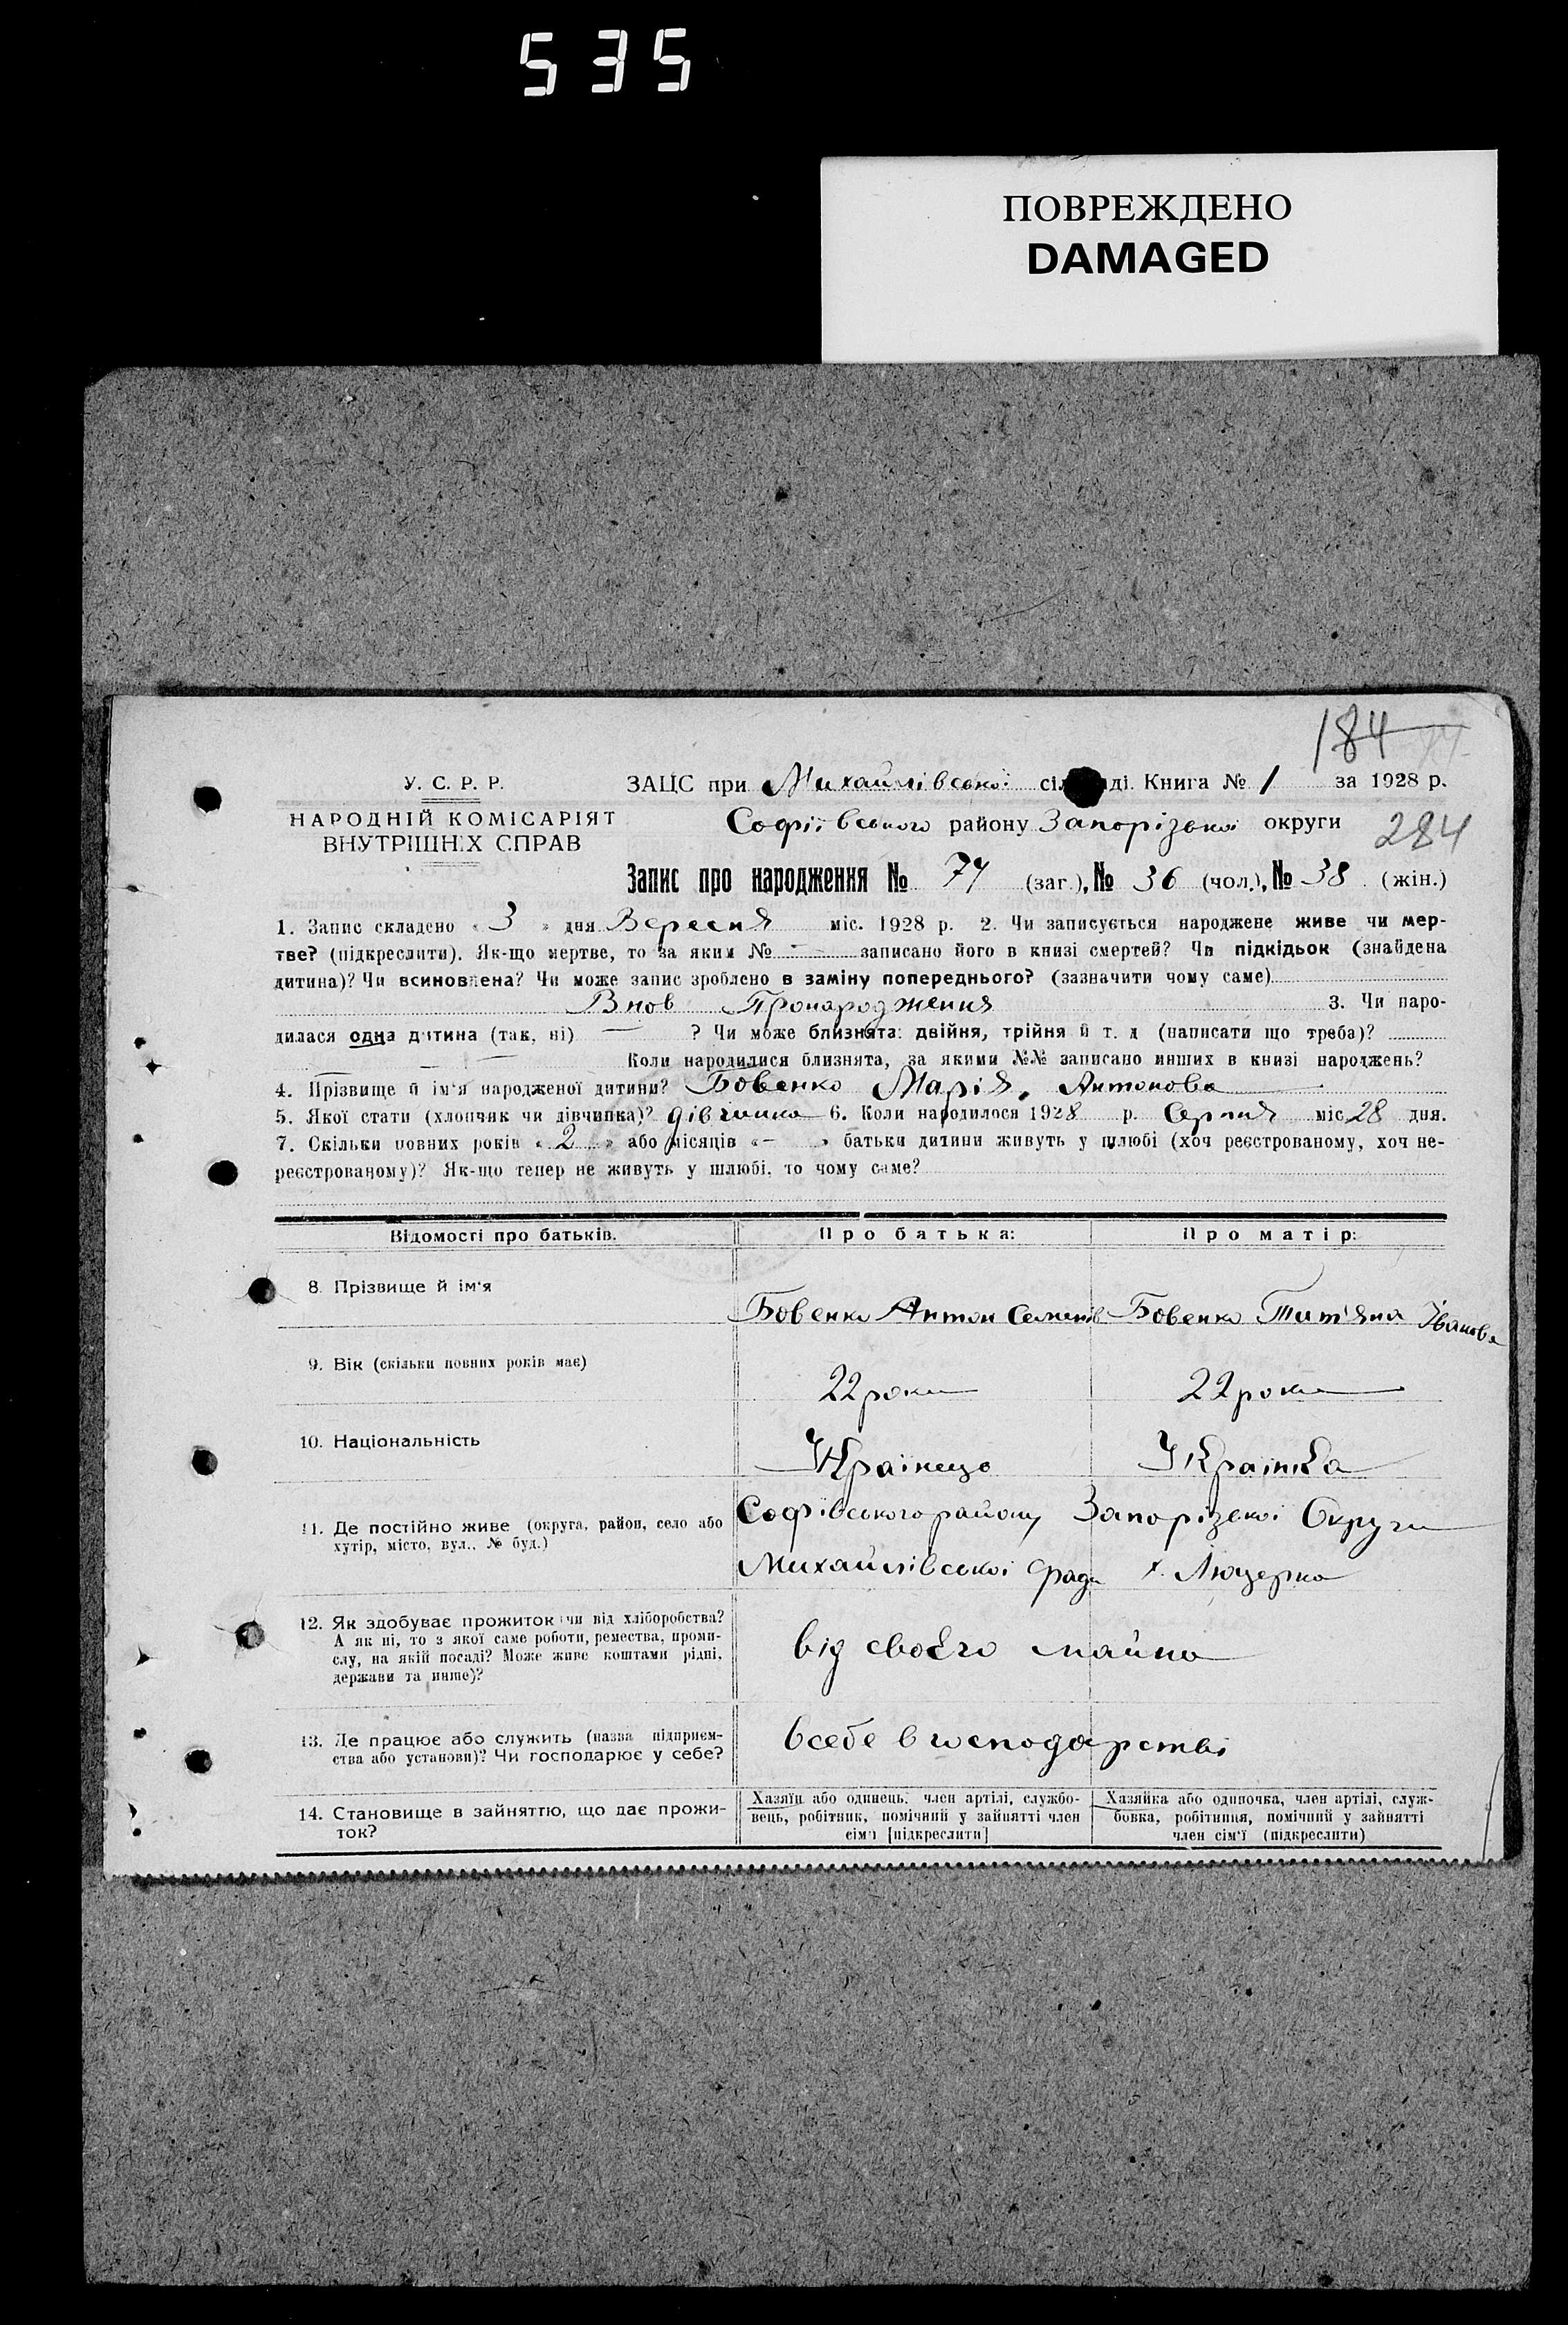 535
ПОВРЕЖДЕНО
DAMAGED
184
У. С. Р. Р.
НАРОДНІЙ КОМІСАРІЯТ
ВНУТРІШНІХ СПРАВ
ЗАЦС при Михайлівської сіл ді. Книга № 1 за 1928 р.
Софіївського району Запорізької округи
284
Запис про народження № 74 (заг.), № 36 (чол.), № 38 (жін.)
1. Запис складено « 3 » дня Вересня міс. 1928 р. 2. Чи записується народжене живе чи мер-
тве? (підкреслити). Як-що мертве, то за яким № — записано його в книзі смертей? Чи підкідьок (знайдена
дитина)? Чи всиновлена? Чи може запис зроблено в заміну попереднього? (зазначити чому саме)
Внов Пронародження 3. Чи наро-
дилася одна дитина (так, ні) — ? Чи може близнята: двійня, трійня й т. д (написати що треба)?
— Коли народилися близнята, за якими №№ записано инших в книзі народжень?
4. Прізвище й ім'я народженої дитини? Бовенко Марія, Антонова
5. Якої стати (хлопчик чи дівчинка)? дівчинка 6. Коли народилося 1928 р. Серпня міс 28 дня.
7. Скільки повних років « 2 » або місяців « – » батьки дитини живуть у шлюбі (хоч реєстрованому, хоч не-
реєстрованому)? Як-що тепер не живуть у шлюбі, то чому саме?
Відомості про батьків. Про батька: Про матір:
8. Прізвище й ім'я Бовенко Антон Семенів Бовенко Тит'яна Іванова
9. Вік (скільки повних років має) 22 роки 22 роки
10. Національність Українець Українка
11. Де постійно живе (округа, район, село або
хутір, місто, вул., № буд.)
Софіївського району Запорізької Округи
Михайлівської Сради х. Люцерна
12. Як здобуває прожиток: чи від хліборобства?
А як ні, то з якої саме роботи, ремества, проми-
слу, на якій посаді? Може живе коштами рідні,
держави та инше)?
від своєго майна
13. Де працює або служить (назва підприєм-
ства або установи)? Чи господарює у себе?
всебе в господарстві
14. Становище в зайняттю, що дає прожи-
ток?
Хазяїн або одинець, член артілі, службо-
вець, робітник, помічний у зайнятті член
сім'ї [підкреслити]
Хазяйка або одиночка, член артілі, служ-
бовка, робітниця, помічний у зайнятті
член сім'ї (підкреслити)